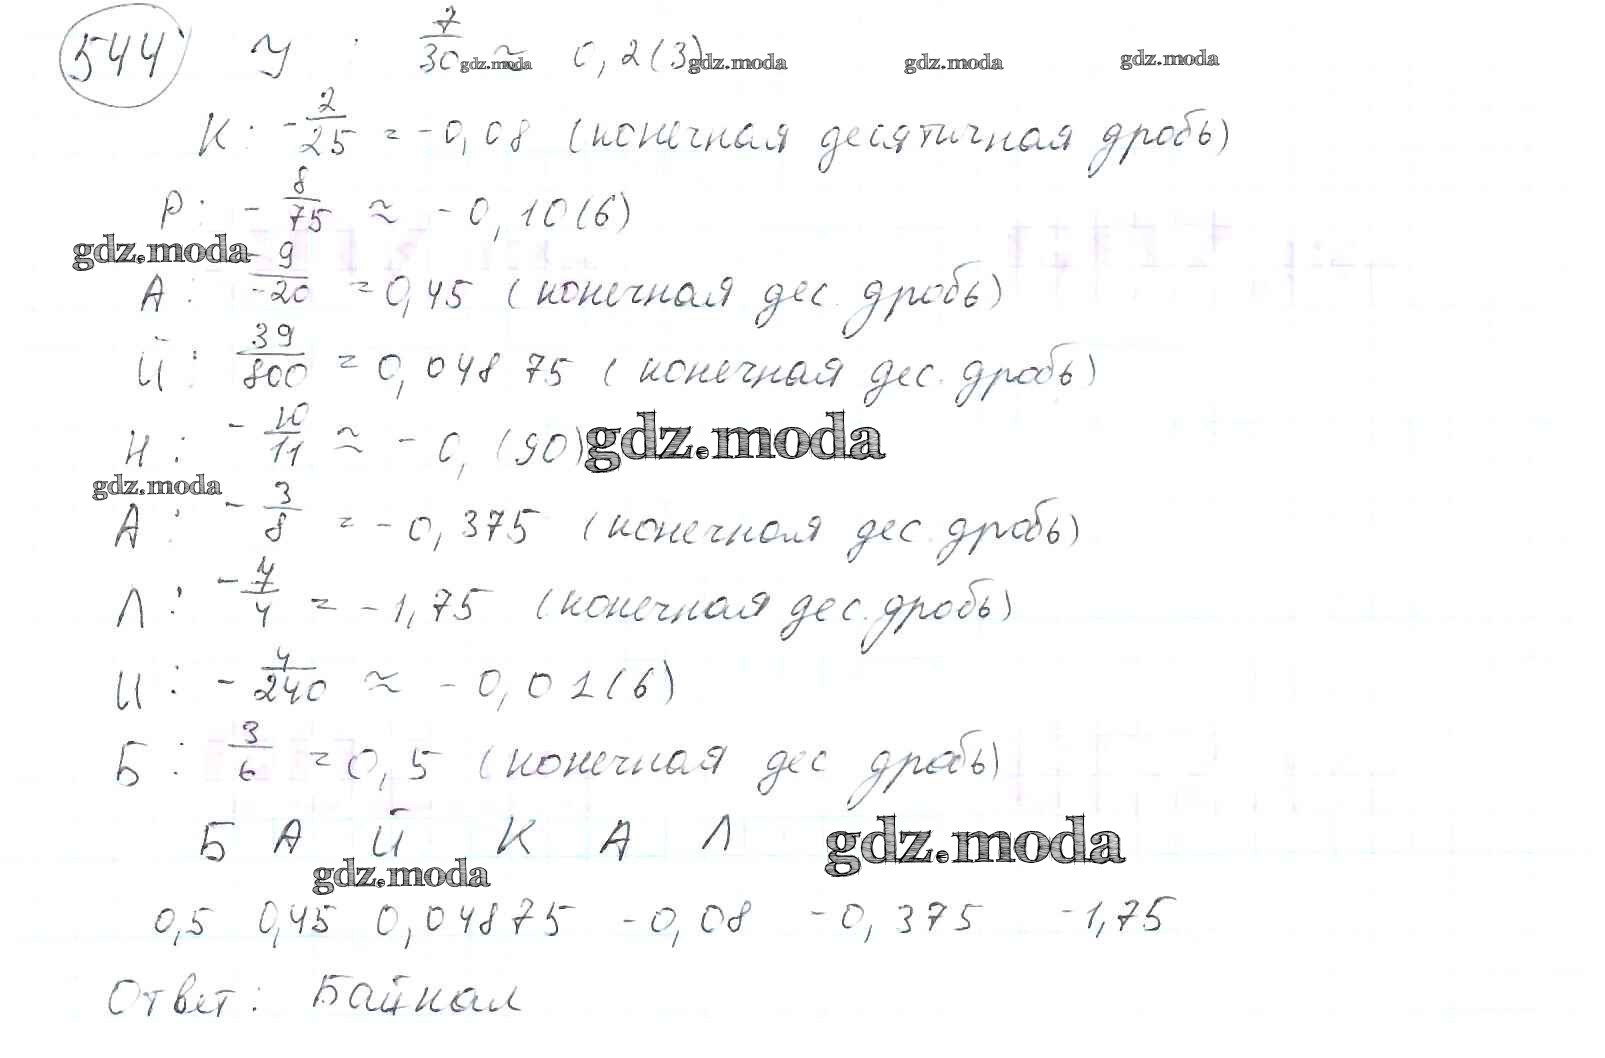 544 У : 7/30 ≈ 0,2(3)
gdz.moda gdz.moda gdz.moda gdz.moda
К : -2/25 = -0,08 (конечная десятичная дробь)
Р : -8/75 ≈ -0,10(6)
gdz.moda
А : -9/-20 = 0,45 (конечная дес. дробь)
Й : 39/800 = 0,04875 (конечная дес. дробь)
Н : -10/11 ≈ -0,(90)
gdz.moda
gdz.moda
А : -3/8 = -0,375 (конечная дес. дробь)
Л : -7/4 = -1,75 (конечная дес. дробь)
И : -4/240 ≈ -0,01(6)
Б : 3/6 = 0,5 (конечная дес дробь)
Б А Й К А Л
gdz.moda
gdz.moda
0,5 0,45 0,04875 -0,08 -0,375 -1,75
Ответ : Байкал